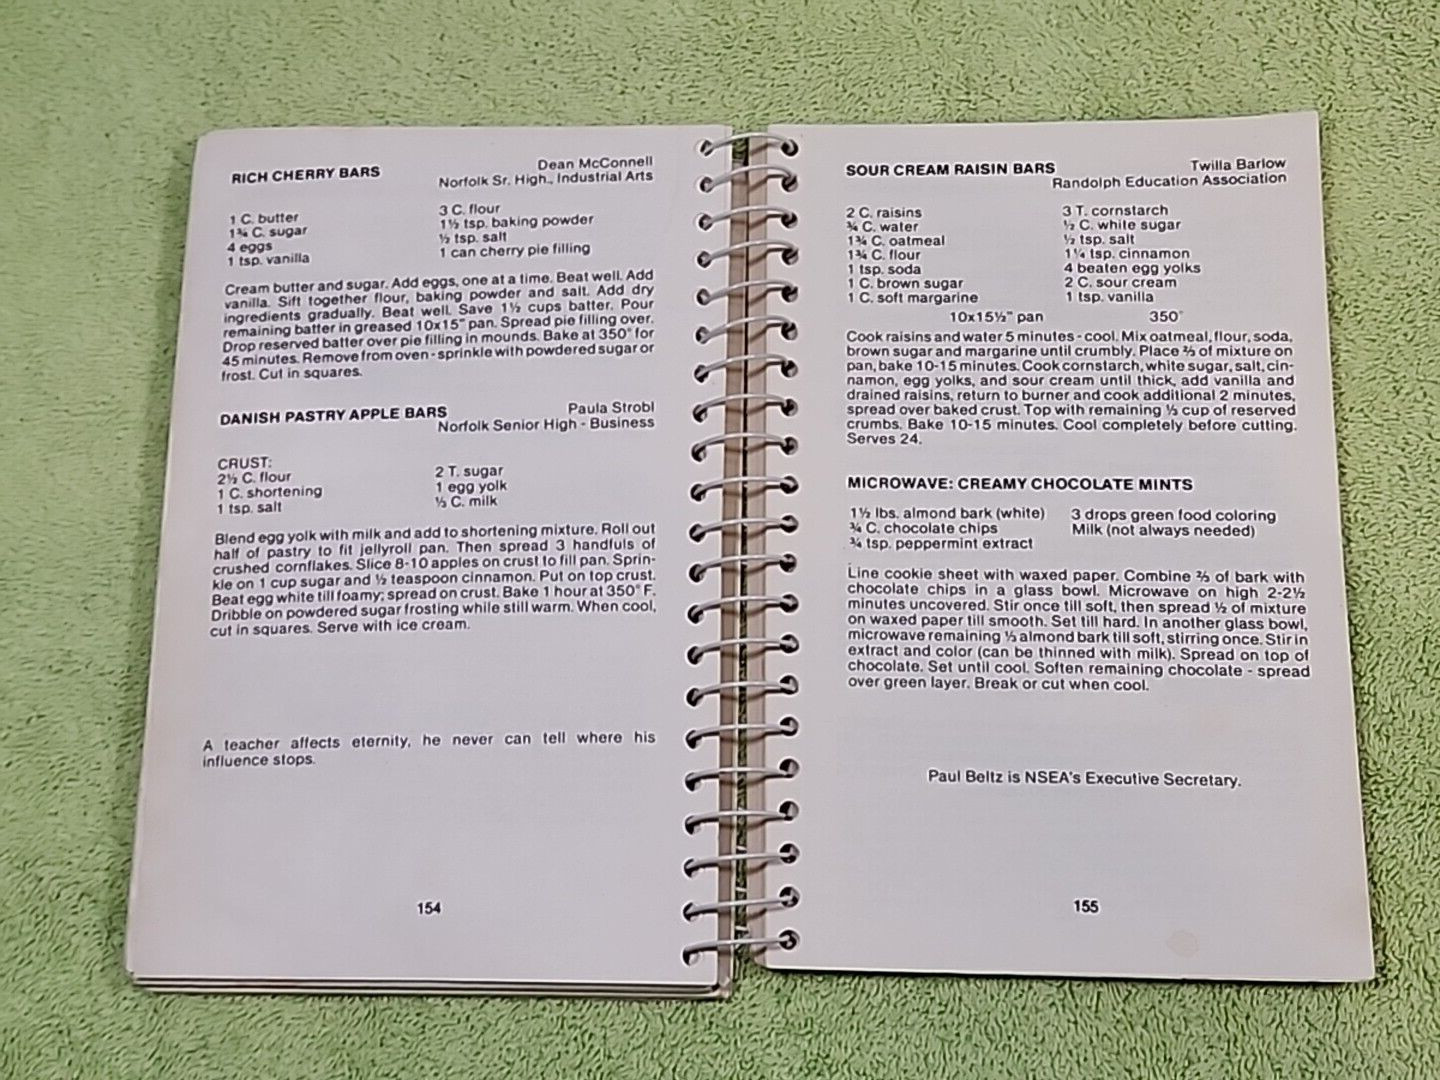 RICH CHERRY BARS
Dean McConnell
Norfolk Sr. High., Industrial Arts
1 C. butter
1¾ C. sugar
4 eggs
1 tsp. vanilla
3 C. flour
1½ tsp. baking powder
½ tsp. salt
1 can cherry pie filling
Cream butter and sugar. Add eggs, one at a time. Beat well. Add
vanilla. Sift together flour, baking powder and salt. Add dry
ingredients gradually. Beat well. Save 1½ cups batter. Pour
remaining batter in greased 10x15" pan. Spread pie filling over.
Drop reserved batter over pie filling in mounds. Bake at 350° for
45 minutes. Remove from oven - sprinkle with powdered sugar or
frost. Cut in squares.
DANISH PASTRY APPLE BARS
Paula Strobl
Norfolk Senior High - Business
CRUST:
2½ C. flour
1 C. shortening
1 tsp. salt
2 T. sugar
1 egg yolk
⅓ C. milk
Blend egg yolk with milk and add to shortening mixture. Roll out
half of pastry to fit jellyroll pan. Then spread 3 handfuls of
crushed cornflakes. Slice 8-10 apples on crust to fill pan. Sprin-
kle on 1 cup sugar and ½ teaspoon cinnamon. Put on top crust.
Beat egg white till foamy; spread on crust. Bake 1 hour at 350° F.
Dribble on powdered sugar frosting while still warm. When cool,
cut in squares. Serve with ice cream.
A teacher affects eternity, he never can tell where his
influence stops.
154
SOUR CREAM RAISIN BARS
Twilla Barlow
Randolph Education Association
2 C. raisins
¾ C. water
1¾ C. oatmeal
1¾ C. flour
1 tsp. soda
1 C. brown sugar
1 C. soft margarine
3 T. cornstarch
½ C. white sugar
½ tsp. salt
1¼ tsp. cinnamon
4 beaten egg yolks
2 C. sour cream
1 tsp. vanilla
10x15½" pan 350°
Cook raisins and water 5 minutes - cool. Mix oatmeal, flour, soda,
brown sugar and margarine until crumbly. Place ⅔ of mixture on
pan, bake 10-15 minutes. Cook cornstarch, white sugar, salt, cin-
namon, egg yolks, and sour cream until thick, add vanilla and
drained raisins, return to burner and cook additional 2 minutes,
spread over baked crust. Top with remaining ⅓ cup of reserved
crumbs. Bake 10-15 minutes. Cool completely before cutting.
Serves 24.
MICROWAVE: CREAMY CHOCOLATE MINTS
1½ lbs. almond bark (white)
¾ C. chocolate chips
¾ tsp. peppermint extract
3 drops green food coloring
Milk (not always needed)
Line cookie sheet with waxed paper. Combine ⅔ of bark with
chocolate chips in a glass bowl. Microwave on high 2-2½
minutes uncovered. Stir once till soft, then spread ½ of mixture
on waxed paper till smooth. Set till hard. In another glass bowl,
microwave remaining ⅓ almond bark till soft, stirring once. Stir in
extract and color (can be thinned with milk). Spread on top of
chocolate. Set until cool. Soften remaining chocolate - spread
over green layer. Break or cut when cool.
Paul Beltz is NSEA's Executive Secretary.
155